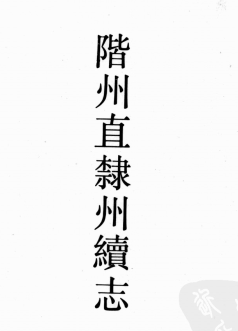 階州直隸州續志